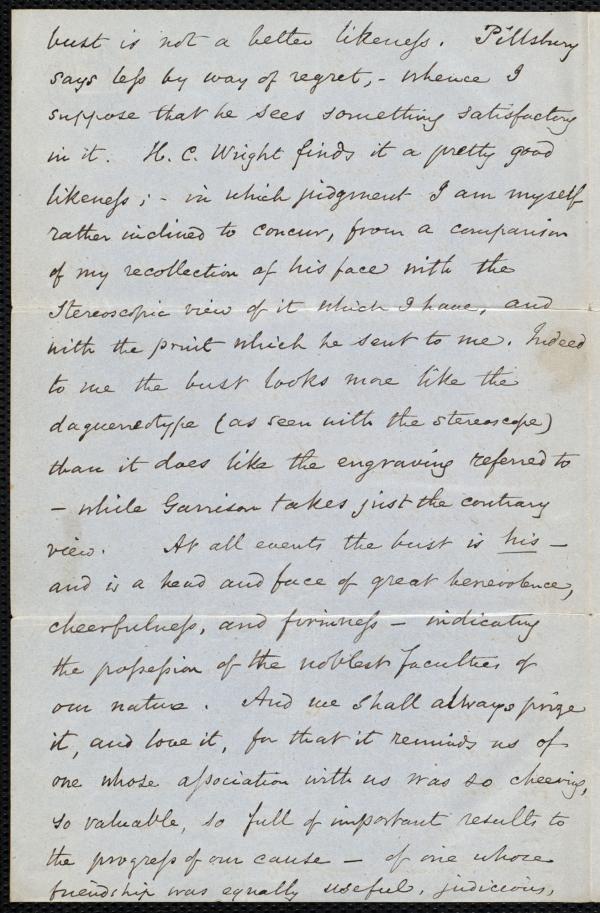 bust is not a better likeness. Pillsbury
says less by way of regret, - whence I
suppose that he sees something satisfactory
in it. H. C. Wright finds it a pretty good
likeness; - in which judgment I am myself
rather inclined to concur, from a comparison
of my recollection of his face with the
stereoscopic view of it which I have, and
with the print which he sent to me. Indeed
to me the bust looks more like the
daguerreotype (as seen with the stereoscope)
than it does like the engraving referred to
- while Garrison takes just the contrary
view. At all events the bust is his -
and is a head and face of great benevolence,
cheerfulness, and firmness - indicating
the possession of the noblest faculties of
our nature. And we shall always prize
it, and love it, for that it reminds us of
one whose association with us was so cheering,
so valuable, so full of important results to
the progress of our cause - of one whose
friendship was equally useful, judicious,